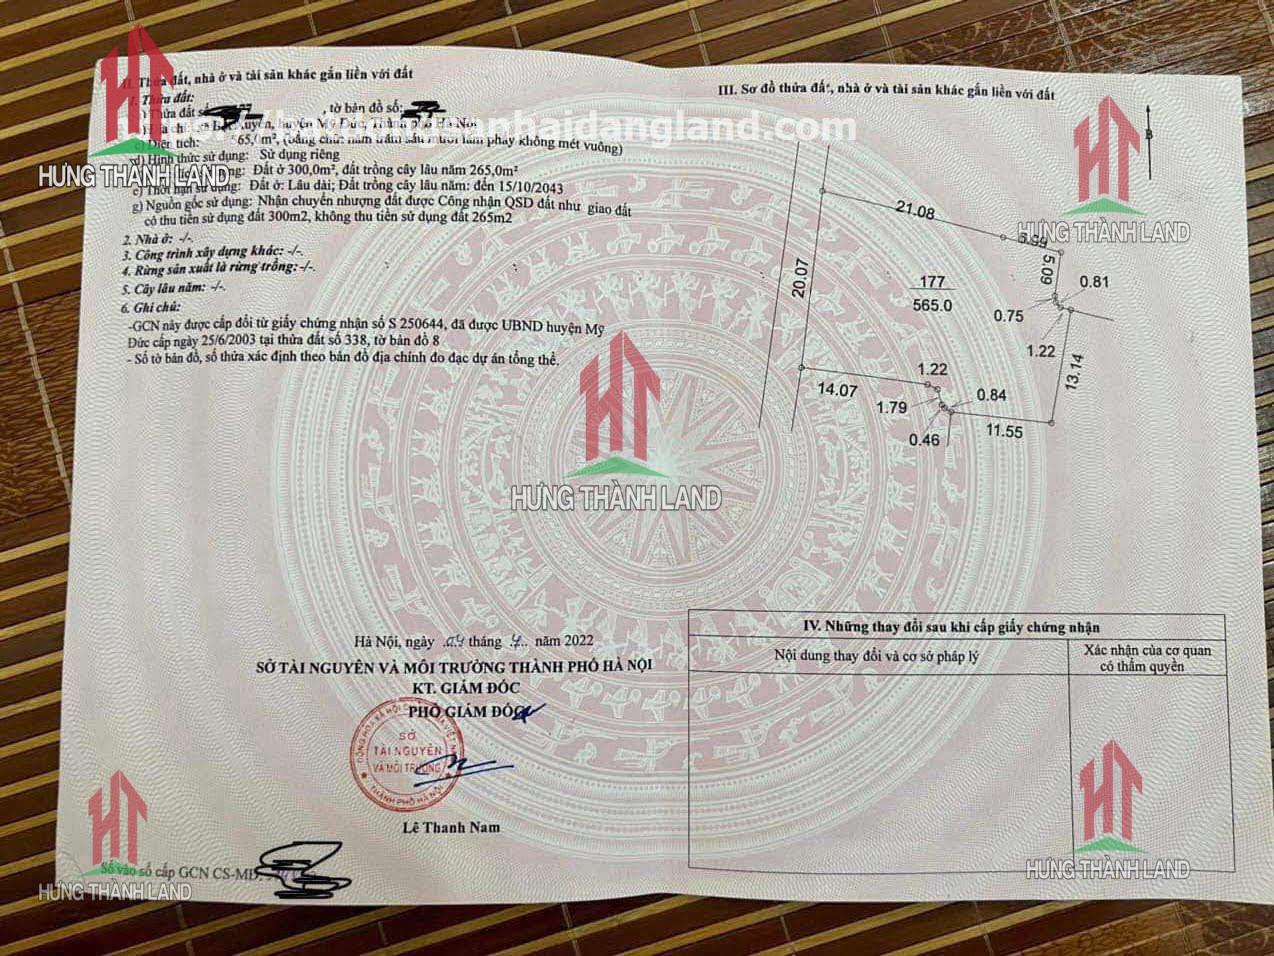 II. Thửa đất, nhà ở và tài sản khác gắn liền với đất
1. Thửa đất:
Thửa đất số , tờ bản đồ số:
huyện Mỹ Đức, Thành phố Hà Nội
c) Diện tích: 565,0m², (bằng chữ: năm trăm sáu mươi lăm phẩy không mét vuông)
d) Hình thức sử dụng: Sử dụng riêng
Đất ở 300,0m², đất trồng cây lâu năm 265,0m²
e) Thời hạn sử dụng: Đất ở: Lâu dài; Đất trồng cây lâu năm: đến 15/10/2043
g) Nguồn gốc sử dụng: Nhận chuyển nhượng đất được Công nhận QSD đất như giao đất
có thu tiền sử dụng đất 300m2, không thu tiền sử dụng đất 265m2
2. Nhà ở: -/-.
3. Công trình xây dựng khác: -/-.
4. Rừng sản xuất là rừng trồng: -/-.
5. Cây lâu năm: -/-.
6. Ghi chú:
-GCN này được cấp đổi từ giấy chứng nhận số S 250644, đã được UBND huyện Mỹ
Đức cấp ngày 25/6/2003 tại thửa đất số 338, tờ bản đồ 8
- Số tờ bản đồ, số thửa xác định theo bản đồ địa chính đo đạc dự án tổng thể.
Hà Nội, ngày 04 tháng 7 năm 2022
SỞ TÀI NGUYÊN VÀ MÔI TRƯỜNG THÀNH PHỐ HÀ NỘI
KT. GIÁM ĐỐC
PHÓ GIÁM ĐỐC
SỞ
TÀI NGUYÊN
VÀ MÔI TRƯỜNG
THÀNH PHỐ HÀ NỘI
Lê Thanh Nam
Số vào sổ cấp GCN CS-MĐ:
III. Sơ đồ thửa đất, nhà ở và tài sản khác gắn liền với đất
B
21.08
6.99
5.09
0.81
20.07
177
565.0
0.75
1.22
13.14
1.22
14.07
1.79
0.84
0.46
11.55
IV. Những thay đổi sau khi cấp giấy chứng nhận
Nội dung thay đổi và cơ sở pháp lý
Xác nhận của cơ quan
có thẩm quyền
HƯNG THÀNH LAND
HƯNG THÀNH LAND
HƯNG THÀNH LAND
HƯNG THÀNH LAND
HƯNG THÀNH LAND